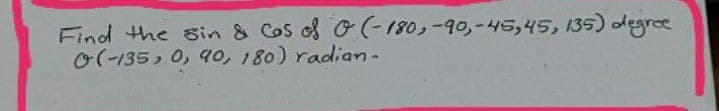 Find the sin & Cos of θ (-180, -90, -45, 45, 135) degree
θ(-135, 0, 90, 180) radian.